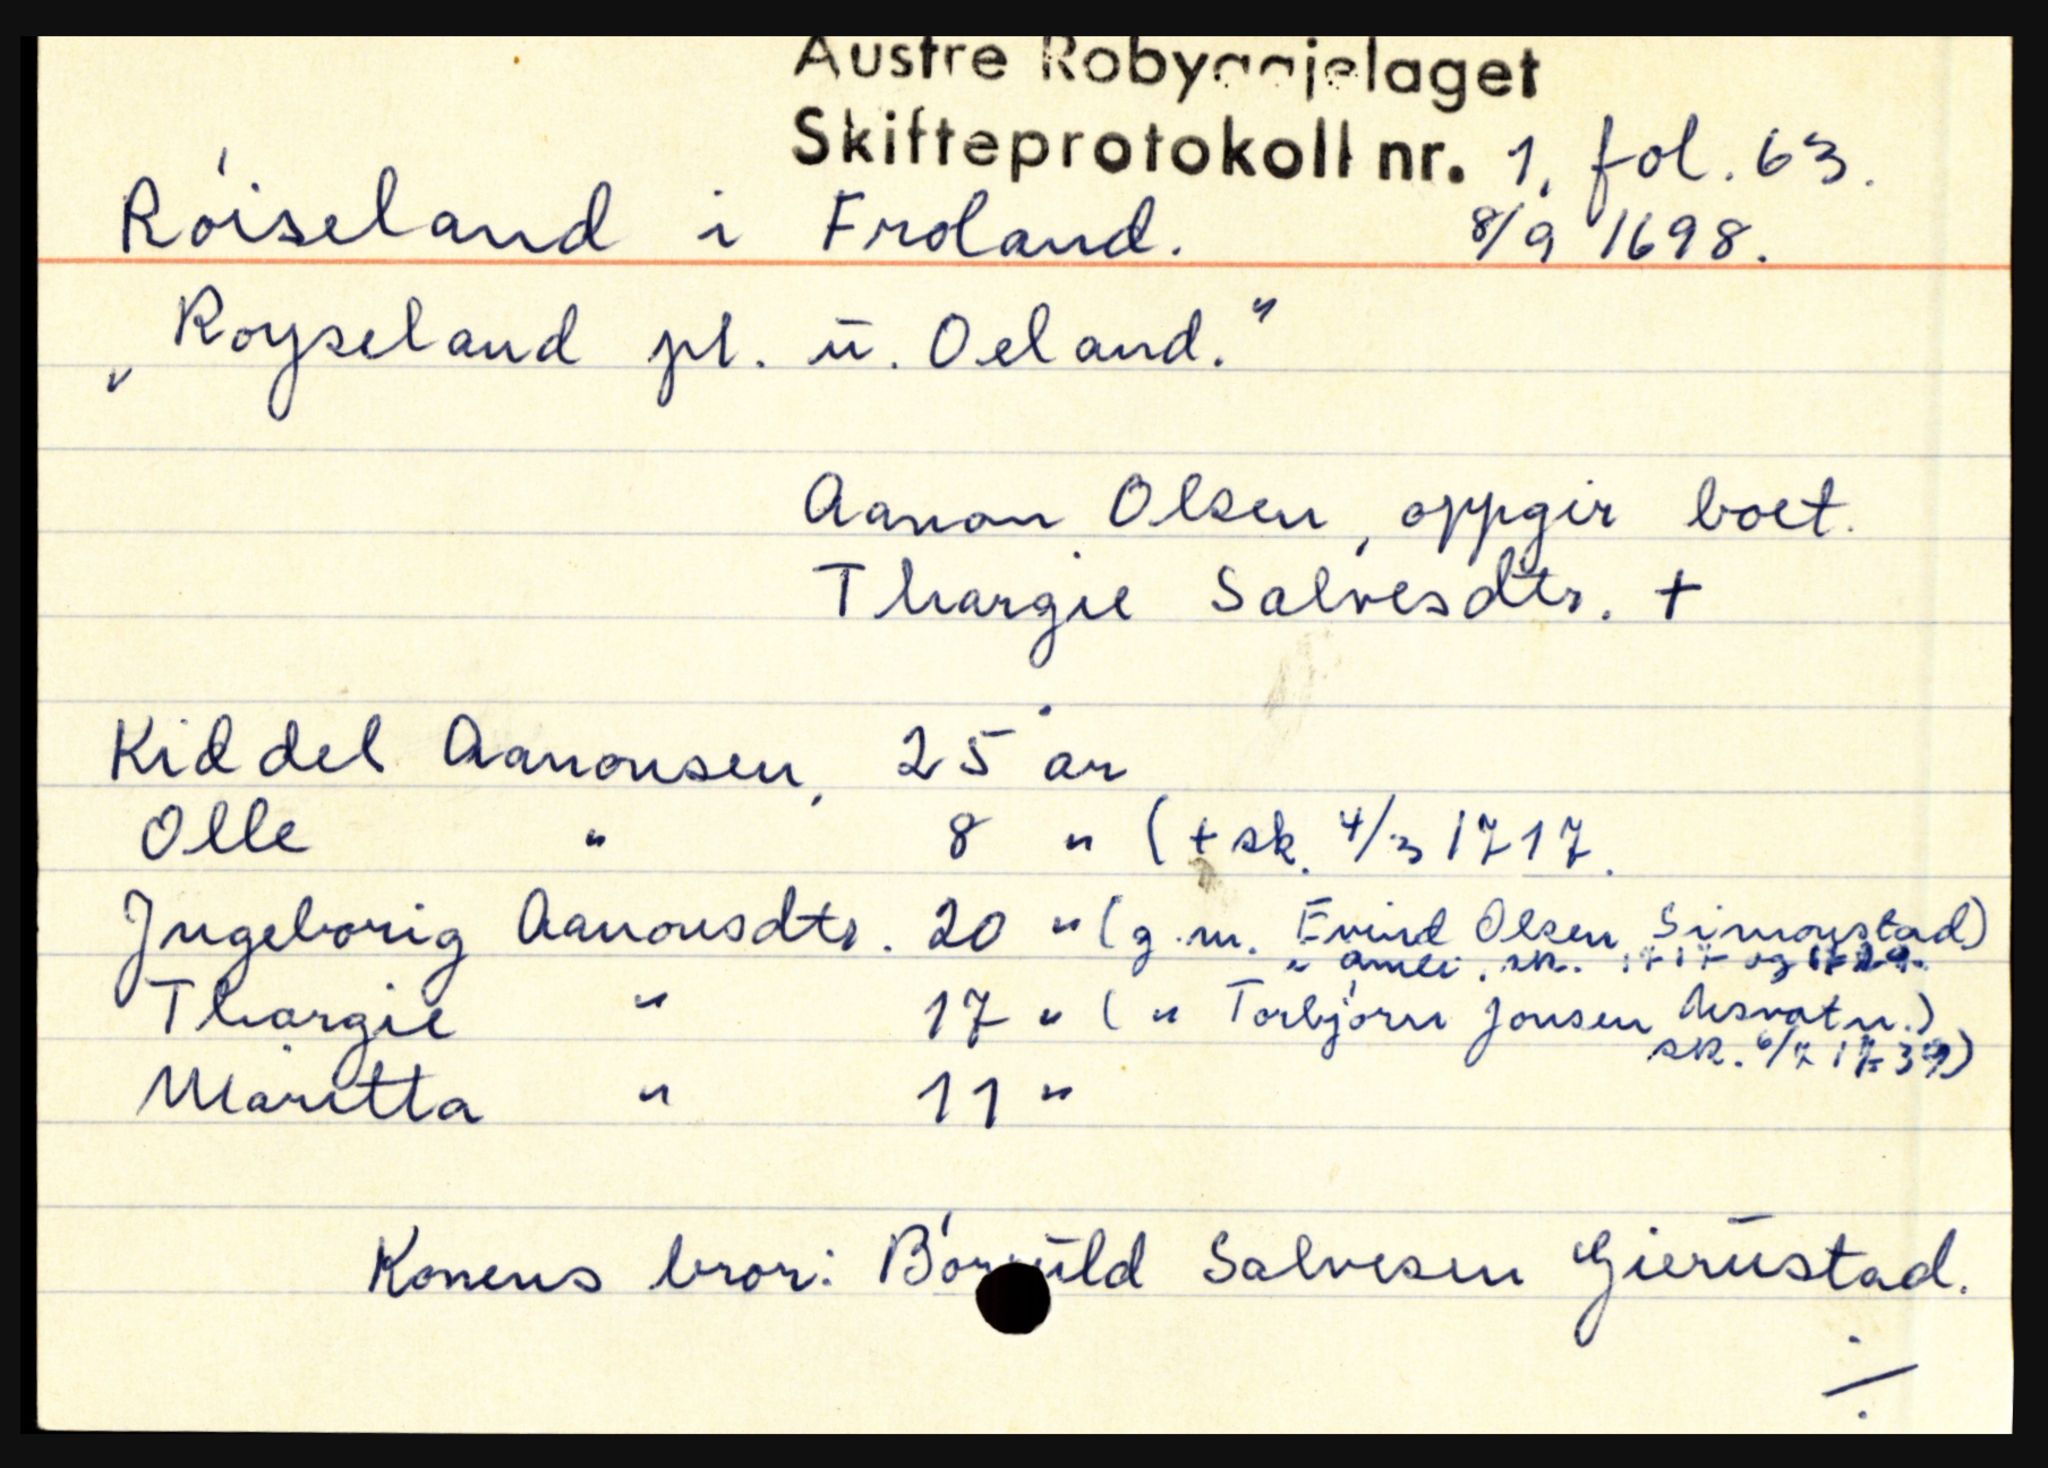 Austre Robyggjelaget
Skifteprotokoll nr. 1, fol. 63.
Róiseland i Froland. 8/9 1698.
„Royseland pl. ū. Oeland."
Aanon Olsen, oppgir boet.
Thargie Salvesdtr. +
Kiddel Aanonsen, 25 år
Olle " 8 " (+ sk. 4/3 1717.
Jngeborig Aanonsdtr. 20 " (g.m. Evind Olsen Simonstad)
" åmli, sk. 1717 og
Thorgie " 17 " ( " Torbjórn Jonsen Aasvatn.)
sk. 6/7 1739)
Maritta " 11 "
Konens bror: Salvesen Gierūstad.